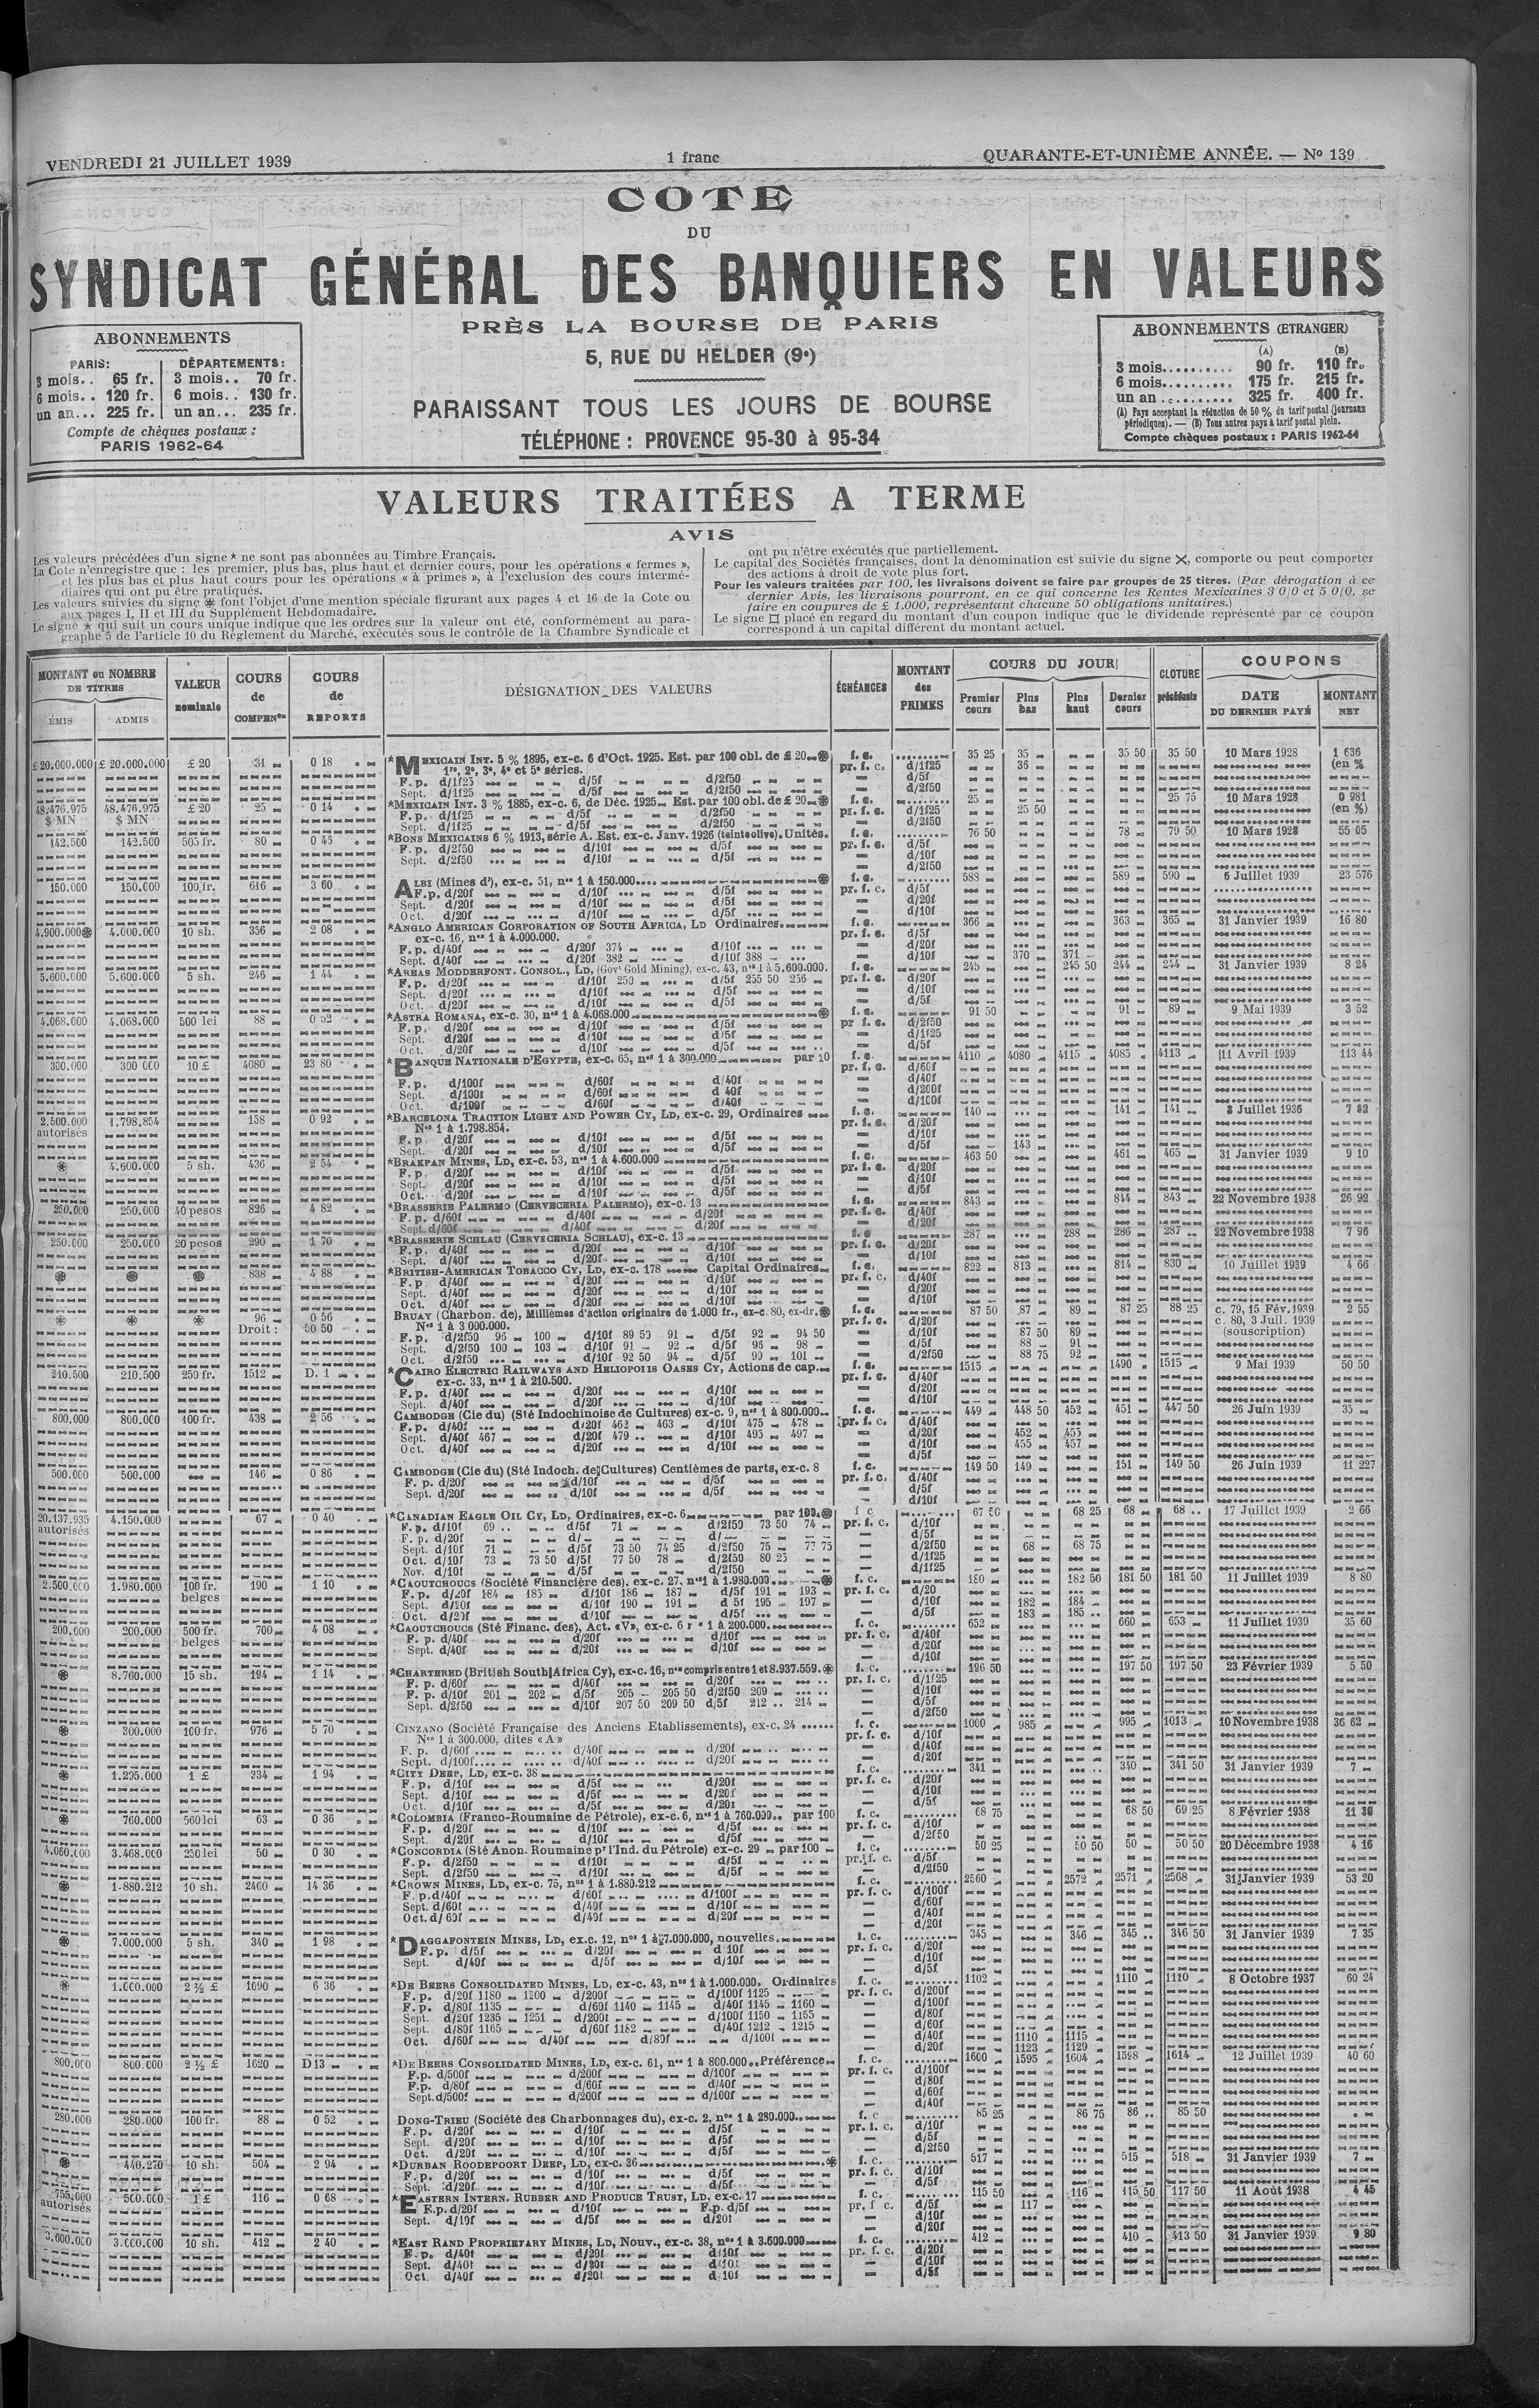 VENDREDI 21 JUILLET 1939
1 franc
QUARANTE-ET-UNIÈME ANNÉE. — Nº 139
COTE
DU
SYNDICAT GÉNÉRAL DES BANQUIERS EN VALEURS
PRÈS LA BOURSE DE PARIS
5, RUE DU HELDER (9e)
PARAISSANT TOUS LES JOURS DE BOURSE
TÉLÉPHONE : PROVENCE 95-30 à 95-34
ABONNEMENTS
PARIS: DÉPARTEMENTS:
3 mois.. 65 fr. 3 mois.. 70 fr.
6 mois.. 120 fr. 6 mois.. 130 fr.
un an... 225 fr. un an... 235 fr.
Compte de chèques postaux :
PARIS 1962-64
ABONNEMENTS (ETRANGER)
(A) (B)
3 mois.......... 90 fr. 110 fr.
6 mois.......... 175 fr. 215 fr.
un an .......... 325 fr. 400 fr.
(A) Pays acceptant la réduction de 50 % du tarif postal (journaux
périodiques). — (B) Tous autres pays à tarif postal plein.
Compte chèques postaux : PARIS 1962-64
VALEURS TRAITÉES A TERME
AVIS
Les valeurs précédées d'un signe * ne sont pas abonnées au Timbre Français.
La Cote n'enregistre que : les premier, plus bas, plus haut et dernier cours, pour les opérations « fermes »,
et les plus bas et plus haut cours pour les opérations « à primes », à l'exclusion des cours intermé-
diaires qui ont pu être pratiqués.
Les valeurs suivies du signe ⊛ font l'objet d'une mention spéciale figurant aux pages 4 et 16 de la Cote ou
aux pages I, II et III du Supplément Hebdomadaire.
Le signe ★ qui suit un cours unique indique que les ordres sur la valeur ont été, conformément au para-
graphe 5 de l'article 10 du Règlement du Marché, exécutés sous le contrôle de la Chambre Syndicale et
ont pu n'être exécutés que partiellement.
Le capital des Sociétés françaises, dont la dénomination est suivie du signe ✕, comporte ou peut comporter
des actions à droit de vote plus fort.
Pour les valeurs traitées par 100, les livraisons doivent se faire par groupes de 25 titres. (Par dérogation à ce
dernier Avis, les livraisons pourront, en ce qui concerne les Rentes Mexicaines 3 0/0 et 5 0/0, se
faire en coupures de £ 1.000, représentant chacune 50 obligations unitaires.)
Le signe □ placé en regard du montant d'un coupon indique que le dividende représenté par ce coupon
correspond à un capital différent du montant actuel.
MONTANT ou NOMBRE DE TITRES
ÉMIS ADMIS
VALEUR nominale
COURS de COMPENon
COURS de REPORTS
DÉSIGNATION DES VALEURS
ÉCHÉANCES
MONTANT des PRIMES
COURS DU JOUR
Premier cours Plus bas Plus haut Dernier cours
CLOTURE précédente
COUPONS
DATE DU DERNIER PAYÉ
MONTANT NET
£ 20.000.000 £ 20.000.000 £ 20 31 0 18 *MEXICAIN INT. 5 % 1895, ex-c. 6 d'Oct. 1925. Est. par 100 obl. de £ 20 ⊛ f. c. 35 25 35 35 50 35 50 10 Mars 1928 1 636
1re, 2e, 3e, 4e et 5e séries. pr. f. c. d/1f25 36 (en %
F. p. d/1f25 d/5f d/2f50 d/5f
Sept. d/1f25 d/5f d/2f50 d/2f50
48.476.975 48.476.975 £ 20 25 0 14 *MEXICAIN INT. 3 % 1885, ex-c. 6, de Déc. 1925 Est. par 100 obl. de £ 20 ⊛ f. c. 25 25 75 10 Mars 1928 0 981
$ MN $ MN F. p. d/1f25 d/5f d/2f50 pr. f. c. d/1f25 25 50 (en %)
Sept. d/1f25 d/5f d/2f50 d/2f50
142.500 142.500 505 fr. 80 *BONS MEXICAINS 6 % 1913, série A. Est. ex-c. Janv. 1926 (teinte olive). Unités. f. c. 76 50 78 79 50 10 Mars 1928 55 05
F. p. d/2f50 d/10f d/5f pr. f. c. d/5f
Sept. d/2f50 d/10f d/5f d/10f
d/2f50
150.000 150.000 100 fr. 616 3 60 ALBI (Mines d'), ex-c. 51, nos 1 à 150.000 ⊛ f. c. 588 589 590 6 Juillet 1939 23 576
F. p. d/20f d/10f d/5f pr. f. c. d/5f
Sept. d/20f d/10f d/5f d/20f
Oct. d/20f d/10f d/5f d/10f
4.900.000⊛ 4.000.000 10 sh. 356 2 08 *ANGLO AMERICAN CORPORATION OF SOUTH AFRICA, LD Ordinaires f. c. 366 363 365 31 Janvier 1939 16 80
ex-c. 16, nos 1 à 4.000.000. pr. f. c. d/5f
F. p. d/40f d/20f 374 d/10f d/20f
Sept. d/40f d/20f 382 d/10f 388 d/10f 370 371
5.600.000 5.600.000 5 sh. 246 1 44 *AREAS MODDERFONT. CONSOL., LD, (Govt Gold Mining), ex-c. 43, nos 1 à 5.600.000. f. c. 245 245 50 244 244 31 Janvier 1939 8 24
F. p. d/20f d/10f 250 d/5f 255 50 256 pr. f. c. d/20f
Sept. d/20f d/10f d/5f d/10f
Oct. d/20f d/10f d/5f d/5f
4.068.000 4.068.000 500 lei 88 0 52 *ASTRA ROMANA, ex-c. 30, nos 1 à 4.068.000 ⊛ f. c. 91 50 91 89 9 Mai 1939 3 52
F. p. d/20f d/10f d/5f pr. f. c. d/2f50
Sept. d/20f d/10f d/5f d/1f25
Oct. d/20f d/10f d/5f d/5f
300.000 300.000 10 £ 4080 23 80 *BANQUE NATIONALE D'EGYPTE, ex-c. 65, nos 1 à 300.000 par 10 f. c. 4110 4080 4115 4085 4113 11 Avril 1939 113 44
pr. f. c. d/60f
F. p. d/100f d/60f d/40f d/40f
Sept. d/100f d/60f d/40f d/200f
Oct. d/100f d/60f d/40f d/100f
2.500.000 1.798.854 158 0 92 *BARCELONA TRACTION LIGHT AND POWER CY, LD, ex-c. 29, Ordinaires f. c. 140 141 141 Juillet 1936
autorisés Nos 1 à 1.798.854. pr. f. c. d/20f
F. p. d/20f d/10f d/5f d/10f
Sept. d/20f d/10f d/5f d/5f 143
⊛ 4.600.000 5 sh. 436 2 54 *BRAKPAN MINES, LD, ex-c. 53, nos 1 à 4.600.000 f. c. 463 50 461 465 31 Janvier 1939 9 10
F. p. d/20f d/10f d/5f pr. f. c. d/20f
Sept. d/20f d/10f d/5f d/10f
Oct. d/20f d/10f d/5f d/5f
250.000 250.000 40 pesos 826 4 82 *BRASSERIE PALERMO (CERVECERIA PALERMO), ex-c. 13 f. c. 843 844 843 22 Novembre 1938 26 92
F. p. d/60f d/40f d/20f pr. f. c. d/40f
Sept. d/60f d/40f d/20f d/20f
250.000 250.000 20 pesos 290 1 70 *BRASSERIE SCHLAU (CERVECERIA SCHLAU), ex-c. 13 f. c. 287 288 286 287 22 Novembre 1938 7 96
F. p. d/40f d/20f d/10f pr. f. c. d/20f
Sept. d/40f d/20f d/10f d/10f
⊛ ⊛ ⊛ 838 4 88 *BRITISH-AMERICAN TOBACCO CY, LD, ex-c. 178 Capital Ordinaires f. c. 822 813 814 830 10 Juillet 1939 4 66
F. p. d/40f d/20f d/10f pr. f. c. d/40f
Sept. d/40f d/20f d/10f d/20f
Oct. d/40f d/20f d/10f d/10f
⊛ ⊛ ⊛ 96 0 56 BRUAY (Charbon. de), Millièmes d'action originaire de 1.000 fr., ex-c. 80, ex-dr. ⊛ f. c. 87 50 87 89 87 25 88 25 c. 79, 15 Fév. 1939 2 55
Droit : 50 50 Nos 1 à 3 000.000. pr. f. c. d/20f c. 80, 3 Juil. 1939
F. p. d/2f50 95 100 d/10f 89 50 91 d/5f 92 94 50 d/10f 87 50 89 (souscription)
Sept. d/2f50 100 103 d/10f 91 92 d/5f 96 98 d/5f 88 91
Oct. d/2f50 d/10f 92 50 94 d/5f 99 101 d/2f50 88 75 92
210.500 210.500 250 fr. 1512 D. 1 *CAIRO ELECTRIC RAILWAYS AND HELIOPOLIS OASES CY, Actions de cap. f. c. 1515 1490 1515 9 Mai 1939 50 50
ex-c. 33, nos 1 à 210.500. pr. f. c. d/40f
F. p. d/40f d/20f d/10f d/20f
Sept. d/40f d/20f d/10f d/10f
800.000 800.000 100 fr. 438 2 56 CAMBODGE (Cie du) (Sté Indochinoise de Cultures) ex-c. 9, nos 1 à 800.000 f. c. 449 448 50 452 451 447 50 26 Juin 1939 35
F. p. d/40f d/20f 462 463 d/10f 475 478 pr. f. c. d/40f
Sept. d/40f 467 d/20f 479 d/10f 495 497 d/20f 452 455
Oct. d/40f d/20f d/10f d/10f 455 457
d/5f
500.000 500.000 146 0 86 CAMBODGE (Cie du) (Sté Indoch. de Cultures) Centièmes de parts, ex-c. 8 f. c. 149 50 149 151 149 50 26 Juin 1939 11 227
F. p. d/20f d/10f d/5f pr. f. c. d/40f
Sept. d/20f d/10f d/5f d/5f
d/10f
20.137.935 4.150.000 67 0 40 *CANADIAN EAGLE OIL CY, LD, Ordinaires, ex-c. 6 par 100 ⊛ f. c. 67 50 68 25 68 68 17 Juillet 1939 2 66
autorisés F. p. d/10f 69 d/5f 71 d/2f50 73 50 74 pr. f. c. d/10f
F. p. d/20f d/ d/ d/5f
Sept. d/10f 71 d/5f 73 50 74 25 d/2f50 75 77 75 d/2f50 68 68 75
Oct. d/10f 73 73 50 d/5f 77 50 78 d/2f50 80 25 d/1f25
Nov. d/10f d/5f d/2f50 d/1f25
2.500.000 1.980.000 100 fr. 190 1 10 *CAOUTCHOUCS (Société Financière des), ex-c. 27, nos 1 à 1.980.000 ⊛ f. c. 180 182 50 181 50 181 50 11 Juillet 1939 8 80
belges F. p. d/20f 184 185 d/10f 186 187 d/5f 191 193 pr. f. c. d/20
Sept. d/20f d/10f 190 191 d/5f 195 197 d/10f 182 184
Oct. d/20f d/10f d/5f d/5f 183 185
200.000 200.000 500 fr. 700 4 08 *CAOUTCHOUCS (Sté Financ. des), Act. «V», ex-c. 6 1 à 200.000 f. c. 652 660 653 11 Juillet 1939 35 60
belges F. p. d/40f d/20f d/10f pr. f. c. d/40f
Sept. d/40f d/20f d/10f d/20f
d/10f
⊛ 8.760.000 15 sh. 194 1 14 *CHARTERED (British South Africa Cy), ex-c. 16, nos compris entre 1 et 8.937.559. ⊛ f. c. 196 50 197 50 197 50 23 Février 1939 5 50
F. p. d/60f d/40f d/20f pr. f. c. d/1f25
F. p. d/10f 201 202 d/5f 205 205 50 d/2f50 209 d/10f
Sept. d/2f50 d/10f 207 50 209 50 d/5f 212 214 d/5f
d/2f50
⊛ 300.000 100 fr. 976 5 70 CINZANO (Société Française des Anciens Etablissements), ex-c. 24 f. c. 1000 985 995 1013 10 Novembre 1938 36 62
Nos 1 à 300.000, dites «A» pr. f. c. d/10f
F. p. d/60f d/40f d/20f d/40f
Sept. d/100f d/40f d/20f d/20f
⊛ 1.295.000 1 £ 334 1 94 *CITY DEEP, LD, ex-c. 38 f. c. 341 340 341 50 31 Janvier 1939 7
F. p. d/10f d/5f d/20f pr. f. c. d/20f
Sept. d/10f d/5f d/20f d/10f
Oct. d/10f d/5f d/20f d/5f
⊛ 760.000 560 lei 63 0 36 *COLOMBIA (Franco-Roumaine de Pétrole), ex-c. 6, nos 1 à 760.000 par 100 f. c. 68 75 68 50 69 25 8 Février 1938 11 30
F. p. d/20f d/10f d/5f pr. f. c. d/10f
Sept. d/20f d/10f d/5f d/2f50
4.060.000 3.468.000 250 lei 50 0 30 *CONCORDIA (Sté Anon. Roumaine pr l'Ind. du Pétrole) ex-c. 29 par 100 f. c. 50 25 50 50 50 50 50 20 Décembre 1938 4 16
F. p. d/2f50 d/10f d/5f pr. f. c. d/5f
Sept. d/2f50 d/10f d/5f d/2f50
⊛ 1.880.212 10 sh. 2460 14 36 *CROWN MINES, LD, ex-c. 75, nos 1 à 1.880.212 f. c. 2560 2572 2571 2568 31 Janvier 1939 53 20
F. p. d/40f d/60f d/100f pr. f. c. d/100f
Sept. d/60f d/40f d/10f d/60f
Oct. d/60f d/40f d/20f d/40f
d/20f
⊛ 7.000.000 5 sh. 340 1 98 *DAGGAFONTEIN MINES, LD, ex.c. 12, nos 1 à 7.000.000, nouvelles. f. c. 345 346 345 346 50 31 Janvier 1939 7 35
F. p. d/5f d/20f d/10f pr. f. c. d/20f
Sept. d/40f d/5f d/10f d/10f
d/5f
⊛ 1.000.000 2 ½ £ 1090 6 36 *DE BEERS CONSOLIDATED MINES, LD, ex-c. 43, nos 1 à 1.000.000. Ordinaires f. c. 1102 1110 1110 8 Octobre 1937 60 24
F. p. d/20f 1180 1200 d/200f d/100f 1125 pr. f. c. d/200f
F. p. d/80f 1135 d/60f 1140 1145 d/40f 1145 1160 d/100f
Sept. d/20f 1235 1251 d/200f d/100f 1150 1155 d/80f
Sept. d/80f 1165 d/60f 1182 d/40f 1212 1215 d/60f
Oct. d/60f d/40f d/80f d/100f d/40f 1110 1115
d/20f 1123 1129
800.000 800.000 2 ½ £ 1620 D 13 *DE BEERS CONSOLIDATED MINES, LD, ex-c. 61, nos 1 à 800.000 Préférence f. c. 1600 1595 1604 1598 1614 12 Juillet 1939 40 60
F.p. d/500f d/200f d/100f pr. f. c. d/100f
F.p. d/80f d/60f d/40f d/80f
Sept. d/500f d/200f d/100f d/60f
d/40f
280.000 280.000 100 fr. 88 0 52 DONG-TRIEU (Société des Charbonnages du), ex-c. 2, nos 1 à 280.000 f. c 85 25 86 75 86 85 50
F. p. d/20f d/10f d/5f pr. f. c. d/10f
Sept. d/20f d/10f d/5f d/5f
Oct. d/20f d/10f d/5f d/2f50
⊛ 440.270 10 sh. 504 2 94 *DURBAN ROODEPOORT DEEP, LD, ex-c. 36 ⊛ f. c. 517 515 518 31 Janvier 1939 7
F. p. d/20f d/10f d/5f pr. f. c. d/10f
Sept. d/20f d/10f d/5f d/5f
755.000 500.000 1 £ 116 0 68 *EASTERN INTERN. RUBBER AND PRODUCE TRUST, LD, ex-c. 17 f. c. 115 50 116 115 50 117 50 11 Août 1938 4 45
autorisés F.p. d/20f d/10f F.p. d/5f pr. f. c. d/5f 117
Sept. d/10f d/5f d/20f d/10f
d/20f
3.600.000 3.600.000 10 sh. 412 2 40 *EAST RAND PROPRIETARY MINES, LD, Nouv., ex-c. 38, nos 1 à 3.600.000 f. c. 412 410 413 50 31 Janvier 1939 9 80
F. p. d/40f d/20f d/10f pr. f. c. d/20f
Sept. d/40f d/20f d/10f d/10f
Oct. d/40f d/20f d/10f d/5f